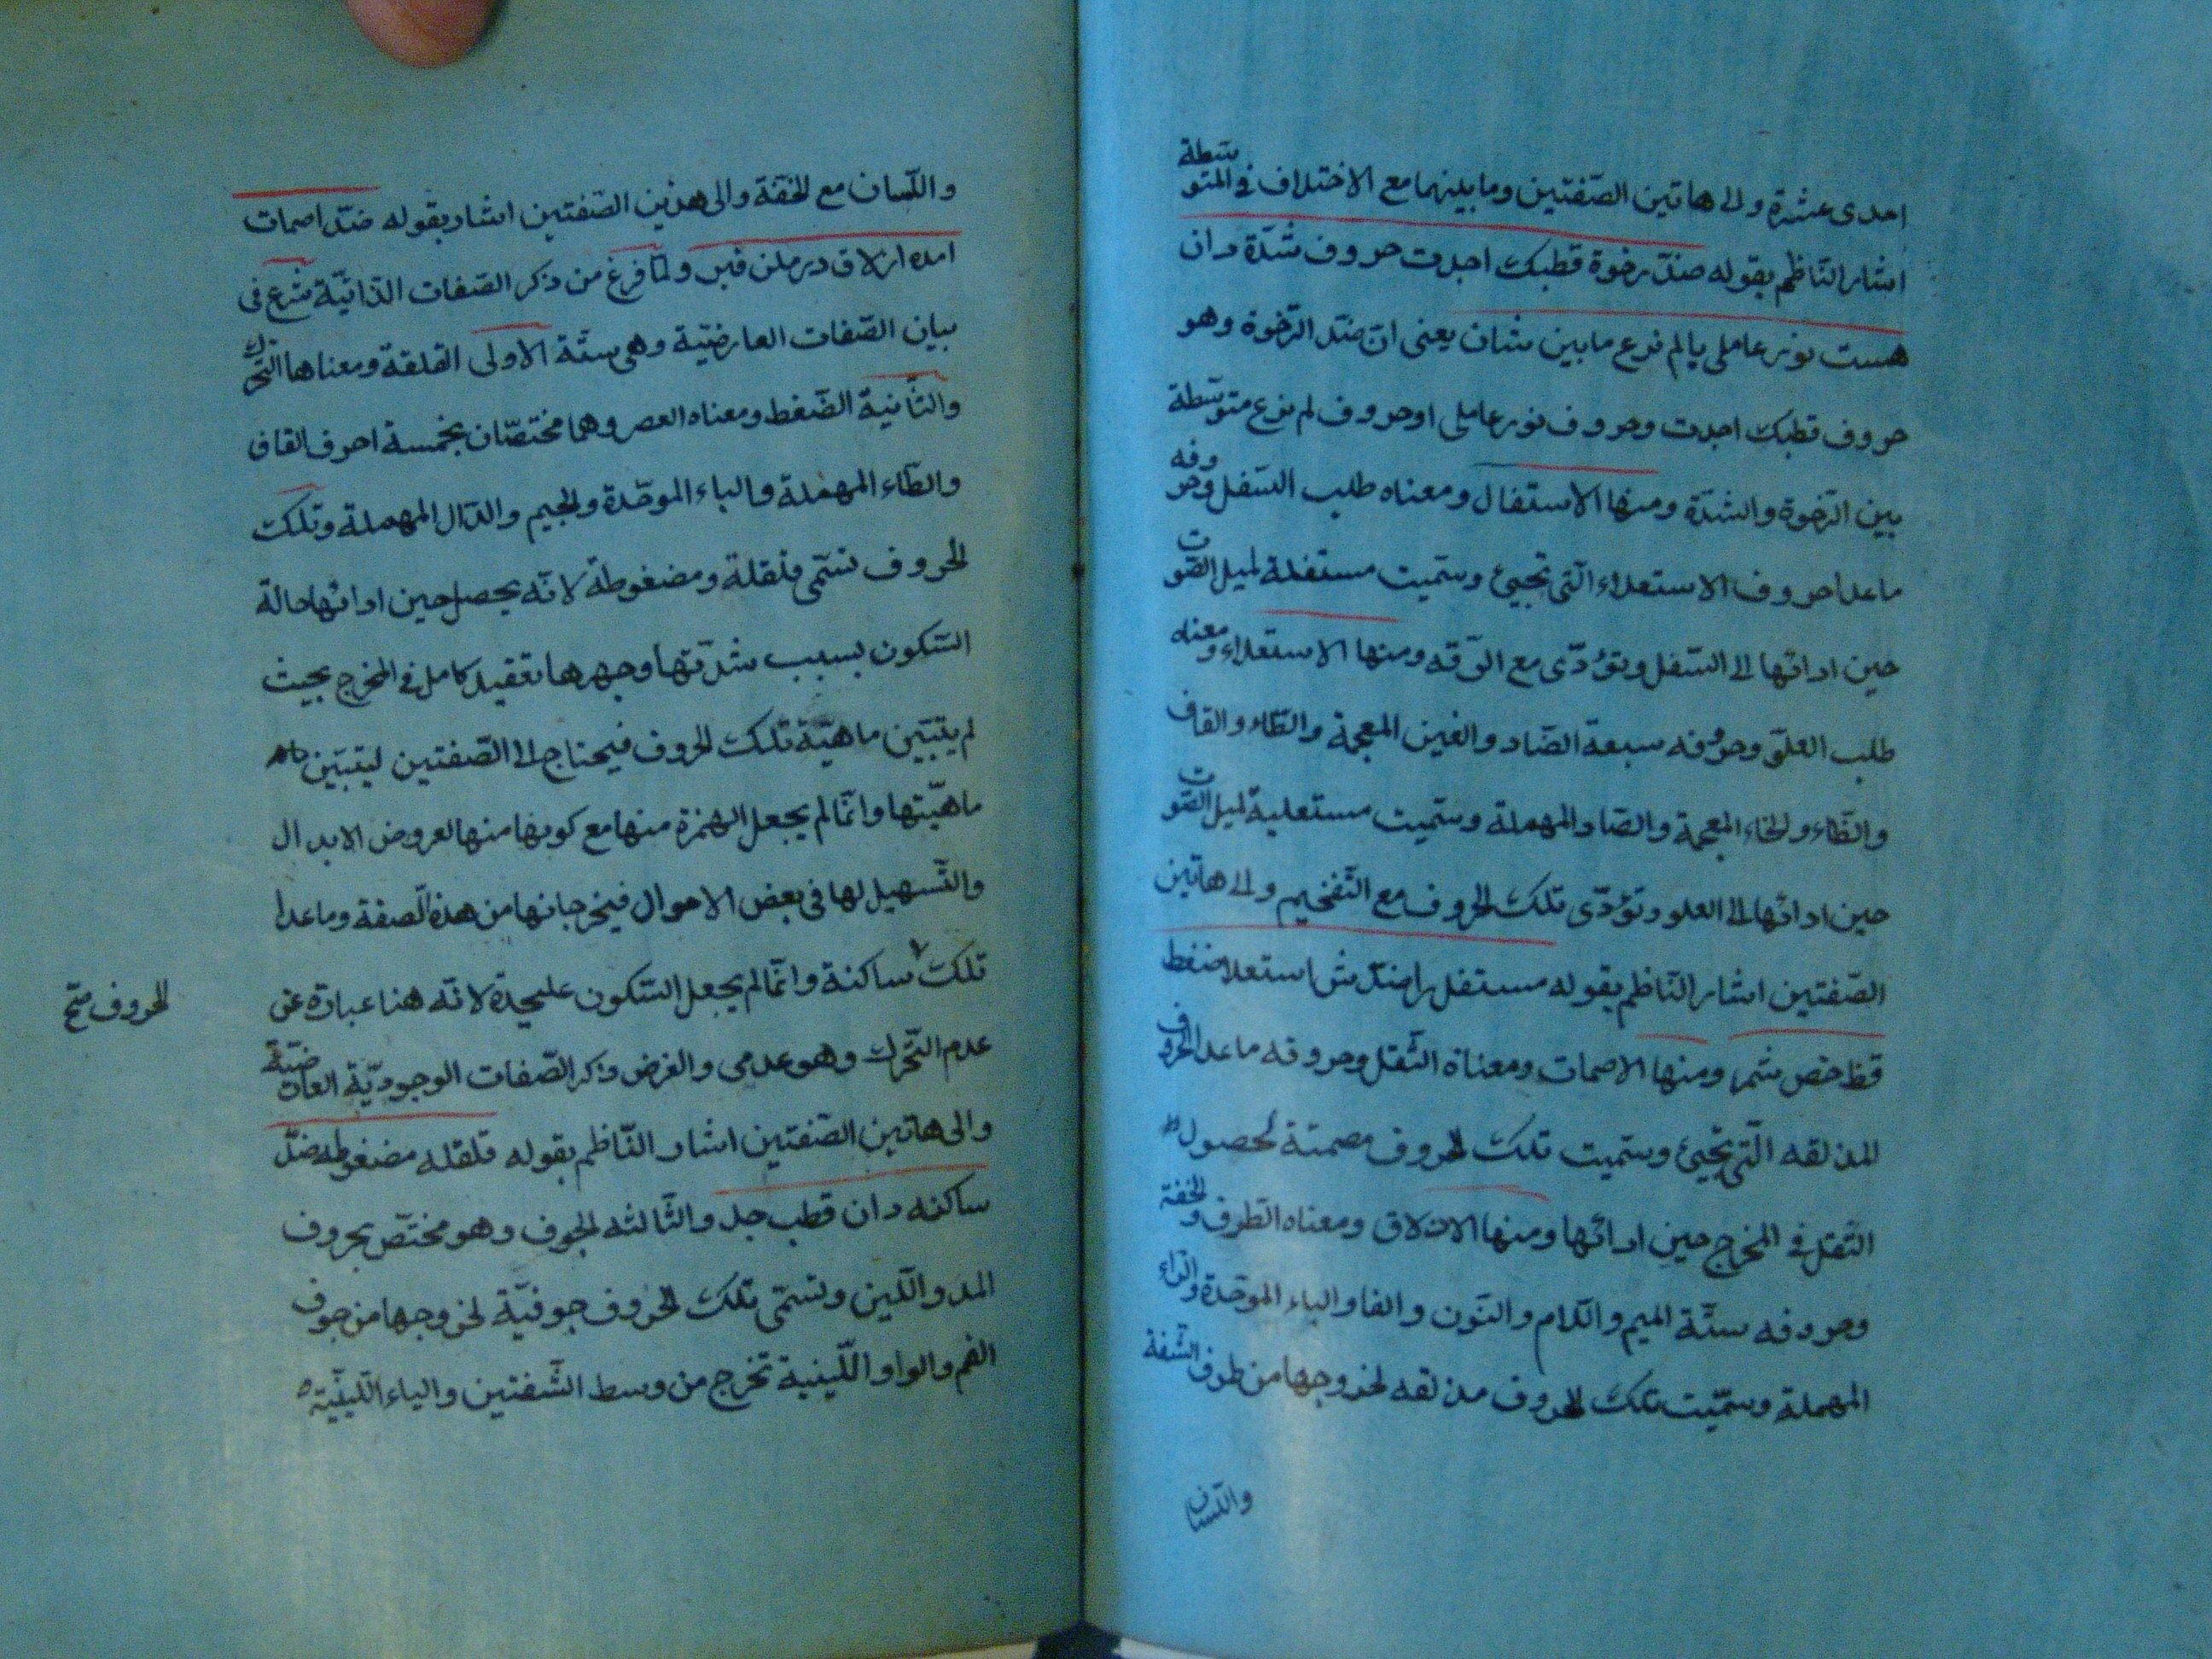 احدى عشرة والى هاتين الصّفتين وما بينهما مع الاختلاف فى المتوسّطة
اشار النّاظم بقوله ضدّ رخوة قطبك اجدت حروف شدّة دان
هست نور عاملى يا لم نرع مابين شان يعنى انّ ضدّ الرّخوة وهو
حروف قطبك اجدت وحروف نور عاملى او حروف لم نرع متوسّطة
بين الرّخوة والشدّة ومنها الاستفال ومعناه طلب السّفل وحروفه
ماعدا حروف الاستعلاء الّتى تجيئ وسمّيت مستفلة لميل الصّوت
حين ادائها الى السّفل وتؤدّى مع الرّقه ومنها الاستعلاء ومعناه
طلب العلوّ وحروفه سبعة الضّاد والغين المعجمة والطّاء والقاف
والظّاء والخاء المعجمة والصّاد المهملة وسمّيت مستعلية لميل الصّوت
حين ادائها الى العلو وتؤدّى تلك الحروف مع التّفخيم والى هاتين
الصّفتين اشار النّاظم بقوله مستفل را ضدّ ش استعلا ضغط
قظ خص شمر ومنها الاصمات ومعناة الثّقل وحروفه ماعدا الحروف
المذلقه الّتى تجيئ وسمّيت تلك الحروف مصمتة لحصول
الثّقل فى المخرج حين ادائها ومنها الاذلاق ومعناه الطّرف والخفّة
وحروفه ستّة الميم والّلام والنّون والفا والباء الموحّدة والرّاء
المهملة وسمّيت تلك الحروف مذلقه لخروجها من طرف الشّفة
والّلسان
والّلسان مع الخفّة والى هذين الصّفتين اشار بقوله ضدّ اصمات
امده ازلاق در ملن فبر ولمّا فرغ من ذكر الصّفات الذّاتيّة شرع فى
بيان الصّفات العارضيّة وهى ستّة الاولى القلقة ومعناها التّحرّك
والثّانية الضّغط ومعناه العصر وهما مختصّان بخمسة احرف القاف
والطّاء المهملة والباء الموحّدة والجيم والدّال المهملة وتلك
الحروف تسمّى قلقلة ومضغوطة لانّه يحصل حين ادائها حالة
السّكون بسبب شدّتها وجهرها تقييد كامل فى المخرج بحيث
لم يتبيّن ماهيّة تلك الحروف فيحتاج الى الصّفتين ليتبيّن
ماهيّتها وانّما لم يجعل الهمزة منها مع كونها منها لعروض الابدال
والتّسهيل لها فى بعض الاحوال فيخرجانها من هذه الصفة وماعدا
تلك ساكنة وانّما لم يجعل السّكون عليحدة لانّه هنا عبارة عن
الحروف صح
عدم التّحرك وهو عدمى والغرض ذكر الصّفات الوجوديّة العارضيّة
والى هاتين الصّفتين اشار النّاظم بقوله قلقله مضغوطه ضدّ
ساكنه دان قطب جد والثّالثه الجوف وهو مختصّ بحروف
المد والّلين وتسمّى تلك الحروف جوفيّة لخروجها من جوف
الفم والواو الّلينية تخرج من وسط الشّفتين والياء الّلينّية